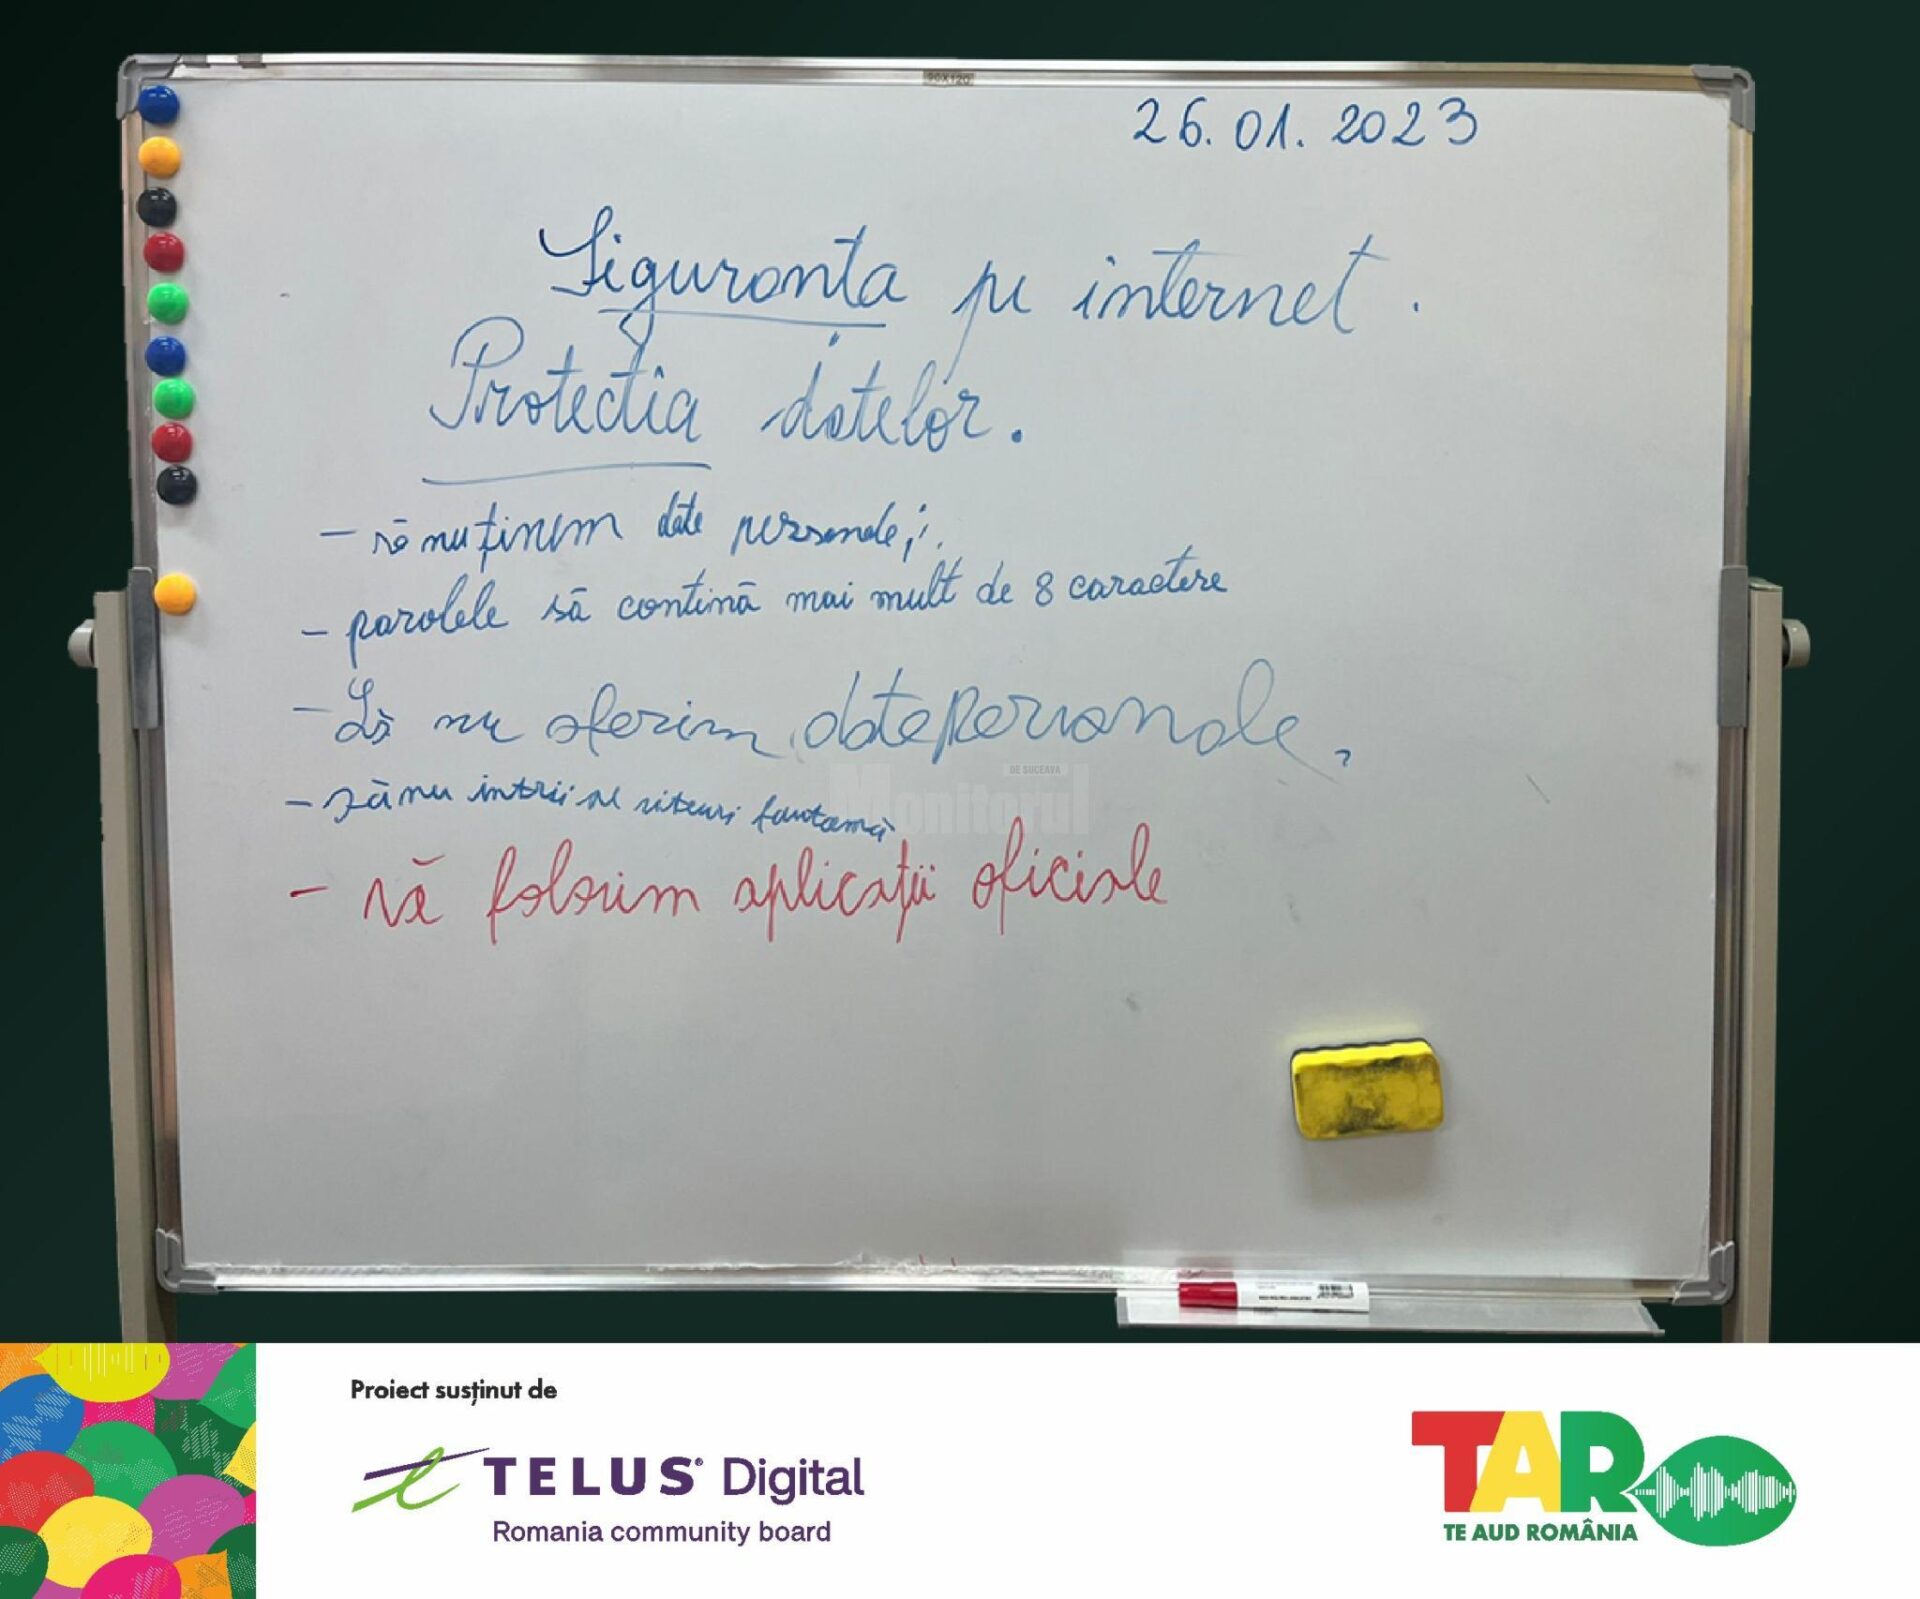 90X120
26.01.2023
Siguranta pe internet.
Protectia datelor.
- să nu ținem date personale;
- parolele să contină mai mult de 8 caractere
- Să nu oferim date personale.
- să nu intrii pe siteuri fantomă
DE SUCEAVA
Monitorul
- să folosim aplicații oficiale
Proiect susținut de
TELUS® Digital
Romania community board
TAR
TE AUD ROMÂNIA